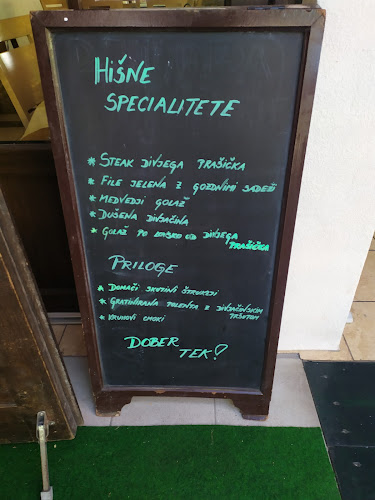 HIŠNE
SPECIALITETE
* STEAK DIVJEGA PRAŠIČKA
* FILE JELENA Z GOZDNIMI SADEŽI
* MEDVEDJI GOLAŽ
* DUŠENA DIVJAČINA
* GOLAŽ PO LOVSKO OD DIVJEGA
PRAŠIČKA
PRILOGE
* DOMAČI SKUTINI ŠTRUKLJI
* GRATINIRANA POLENTA Z DIVJAČINSKIM
PRŠUTOM
* KRUHOVI CMOKI
DOBER
TEK!